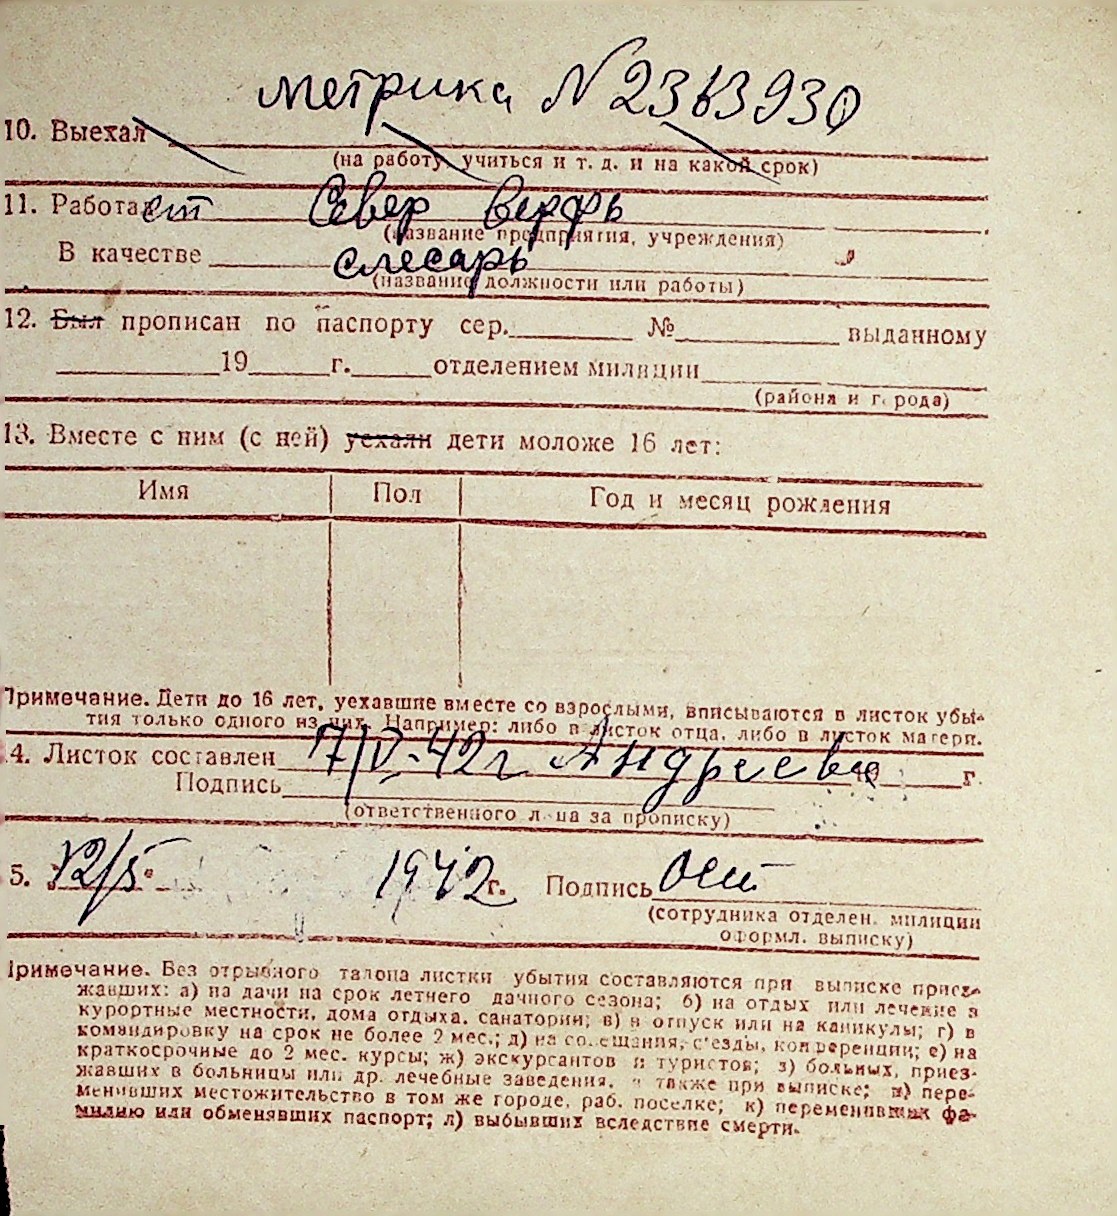 метрика N 2363930
10. Выехал
(на работу, учиться и т. д. и на какой срок)
11. Работает Север верфь
(название предприятия, учреждения)
В качестве слесарь
(название должности или работы)
12. Был прописан по паспорту сер. № выданному
19 г. отделением милиции
(района и города)
13. Вместе с ним (с ней) уехали дети моложе 16 лет:
Имя Пол Год и месяц рождения
Примечание. Дети до 16 лет, уехавшие вместе со взрослыми, вписываются в листок убы-
тия только одного из них. Например: либо в листок отца, либо в листок матери.
4. Листок составлен 7/V-42г Андреева 19 г.
Подпись
(ответственного лица за прописку)
5. 12/5 1942 г. Подпись
(сотрудника отделен. милиции
оформл. выписку)
Примечание. Без отрывного талона листки убытия составляются при выписке приез-
жавших: а) на дачи на срок летнего дачного сезона; б) на отдых или лечение в
курортные местности, дома отдыха, санатории; в) в отпуск или на каникулы; г) в
командировку на срок не более 2 мес.; д) на совещания, съезды, конференции; е) на
краткосрочные до 2 мес. курсы; ж) экскурсантов и туристов; з) больных, приез-
жавших в больницы или др. лечебные заведения, а также при выписке; и) пере-
менивших местожительство в том же городе, раб. поселке; к) переменивших фа-
милию или обменявших паспорт; л) выбывших вследствие смерти.